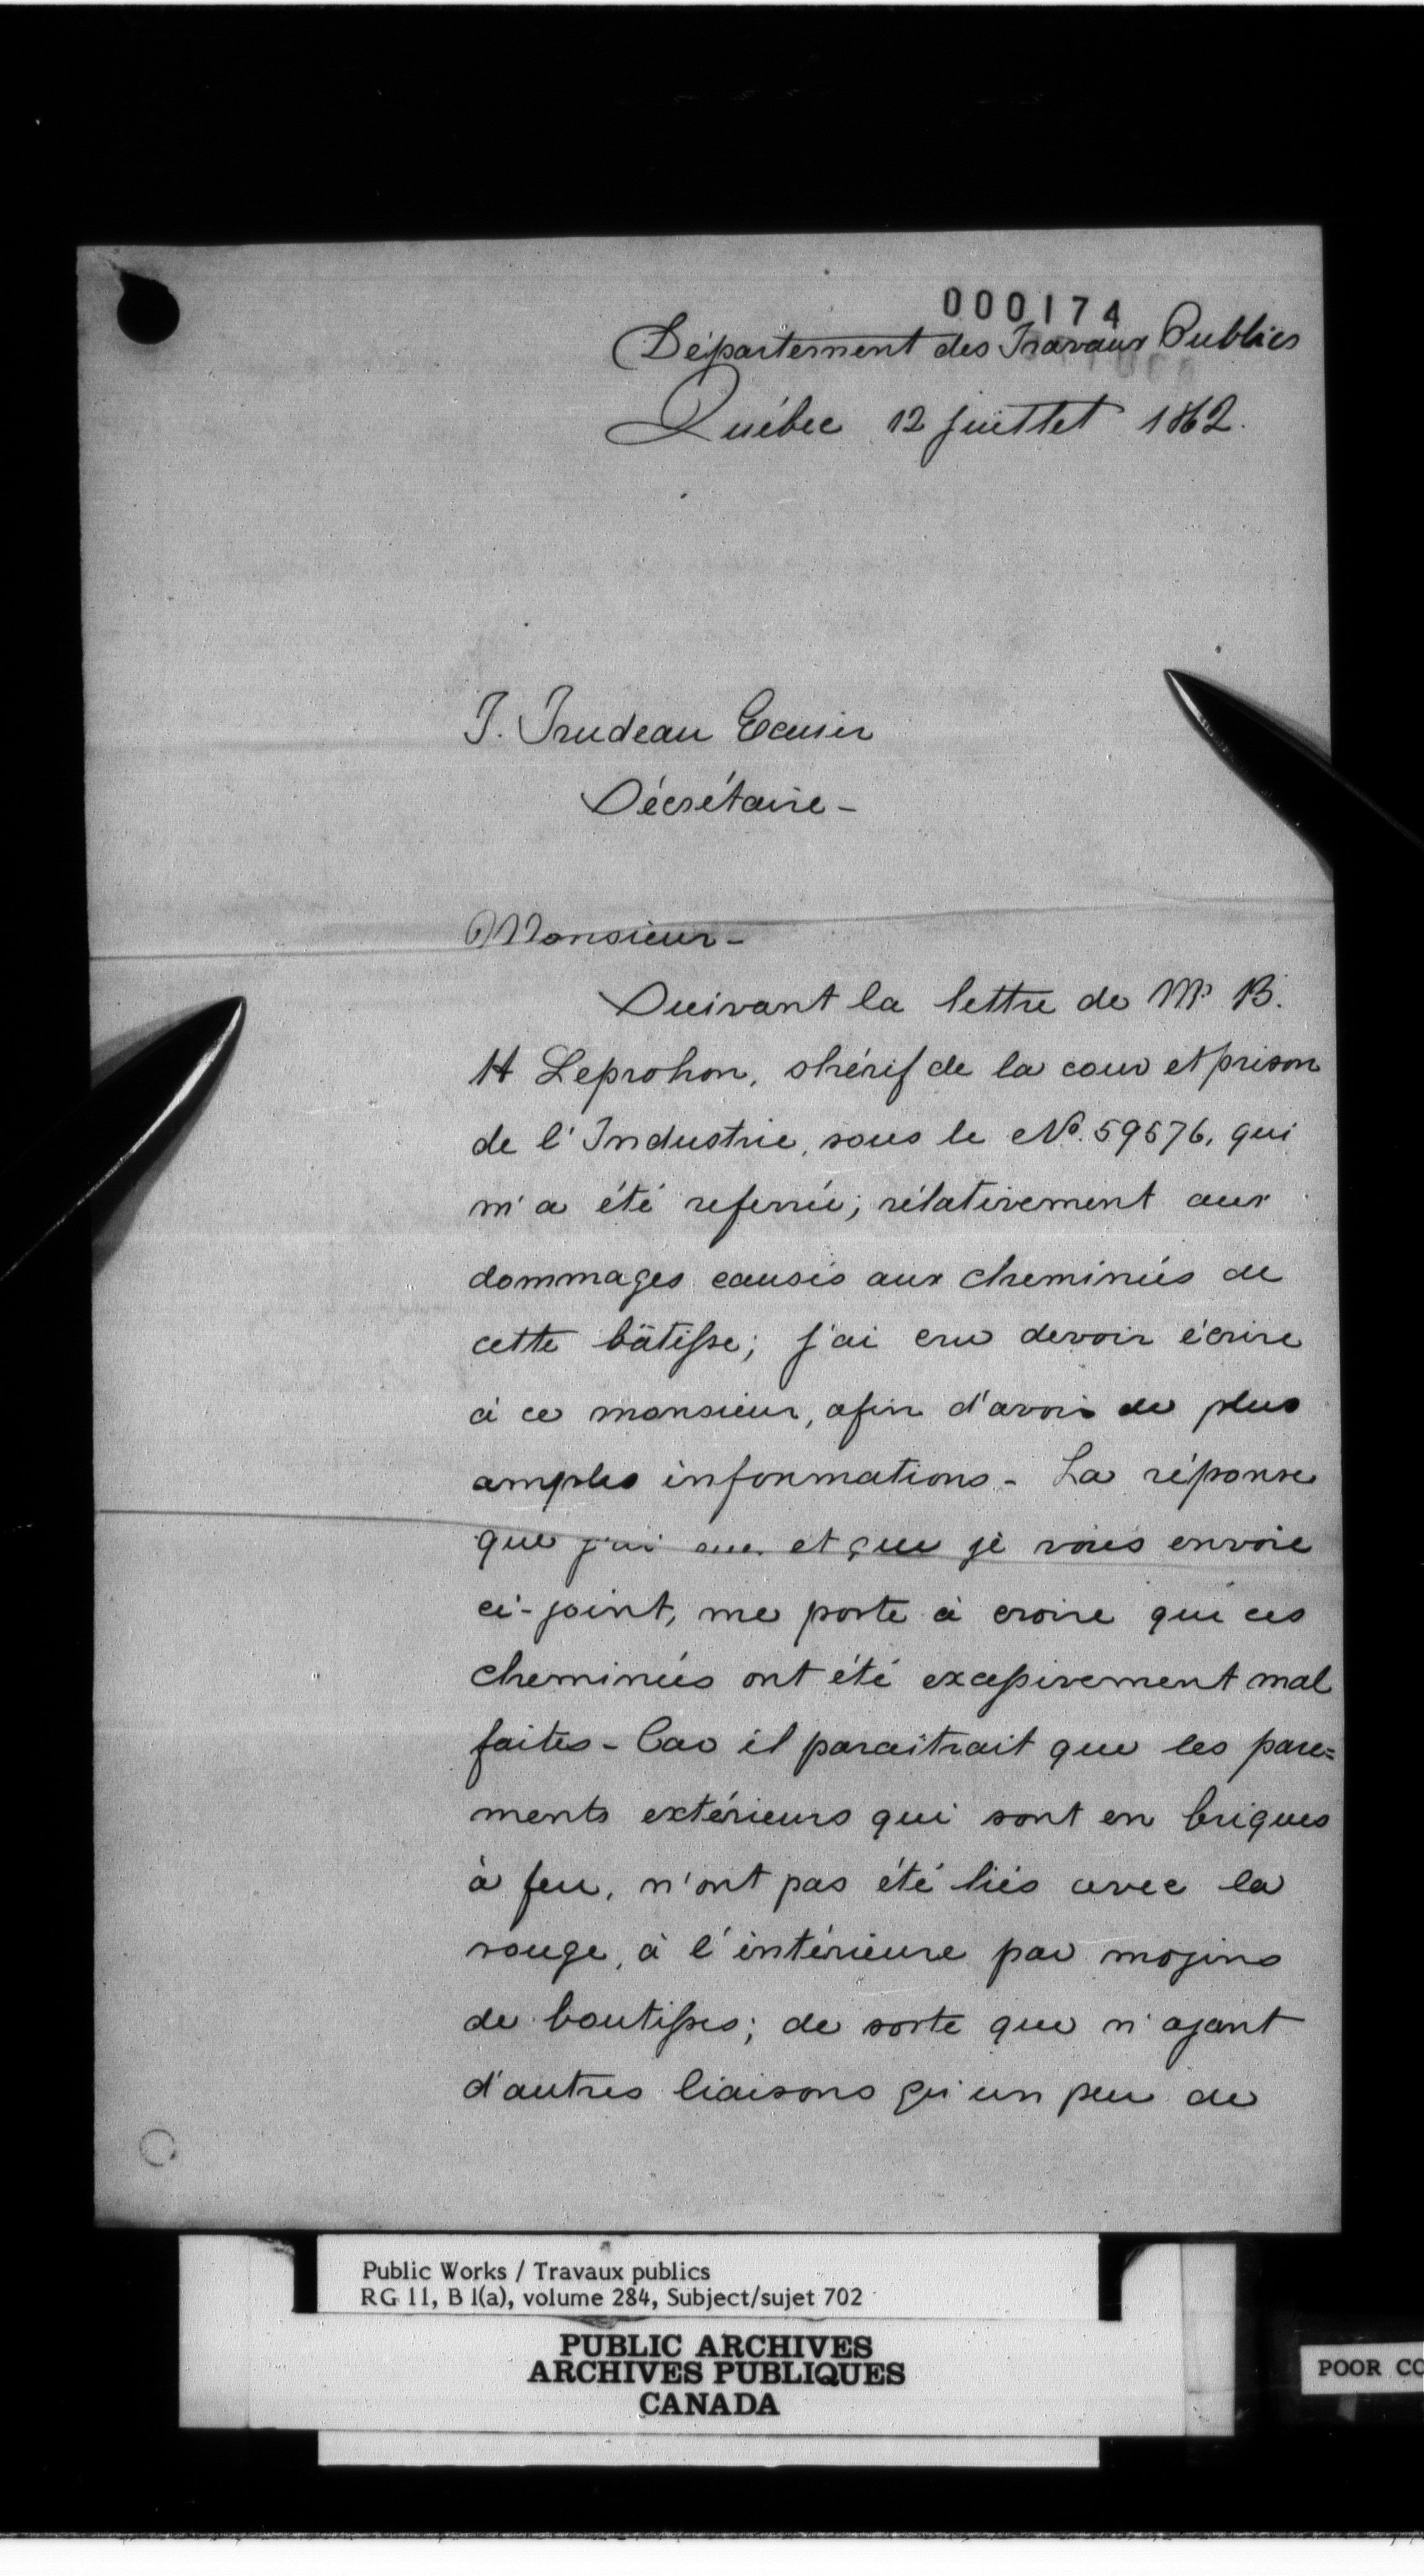 000174
Département des Travaux Publics
Québec 12 juillet 1862.
T. Trudeau Ecuier
Sécrétaire -
Monsieur -
Suivant la lettre de Mr B.
H Leprohon, shérif de la cour et prison
de l'Industrie, sous le No. 59576, qui
m'a été referrée; rélativement aux
dommages causés aux cheminées de
cette bâtisse; j'ai cru devoir écrire
à ce monsieur, afin d'avoir de plus
amples informations - La réponse
que j'ai eue et que je vous envoie
ci-joint, me porte à croire que ces
cheminées ont été excessivement mal
faites - Car il paraitrait que les pare=
ments extérieurs qui sont en briques
à feu, n'ont pas été liés avec la
rouge, à l'intérieure par moyens
de boutisses; de sorte que n'ayant
d'autres liaisons qu'un peu de
Public Works / Travaux publics
RG 11, B 1(a), volume 284, Subject/sujet 702
PUBLIC ARCHIVES
ARCHIVES PUBLIQUES
CANADA
POOR CO